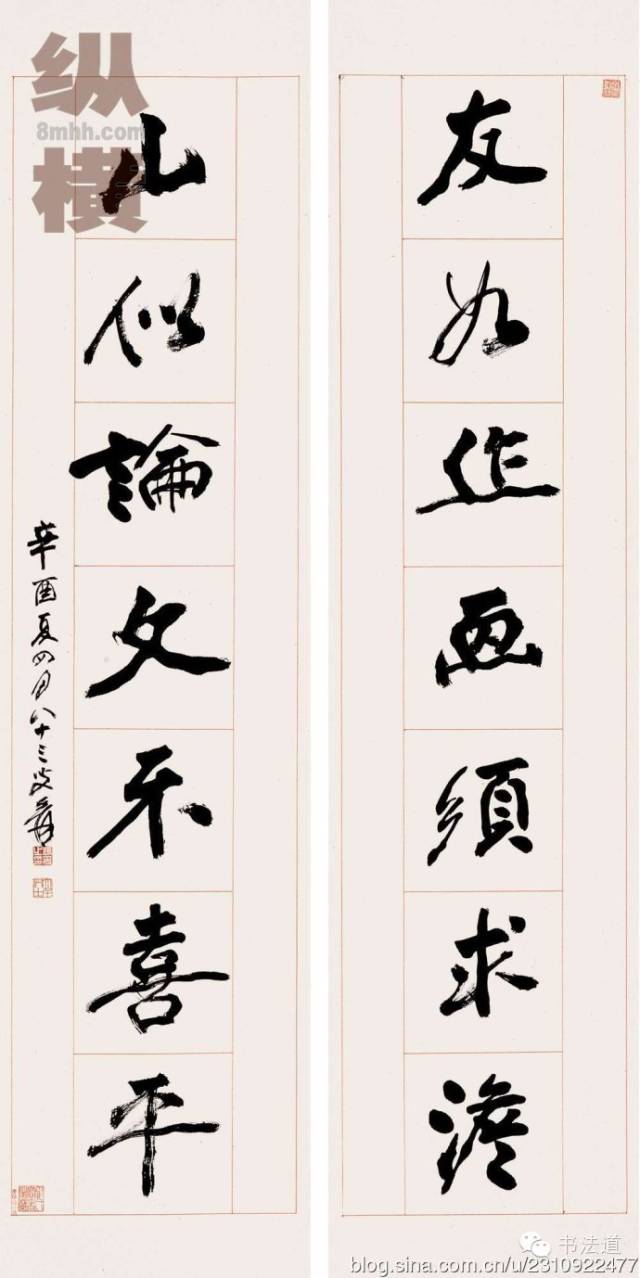 友如作画須求澹
山似論文不喜平
辛酉夏四月八十三叟爰
纵横
8mhh.com
书法道
blog.sina.com.cn/u/2310922477